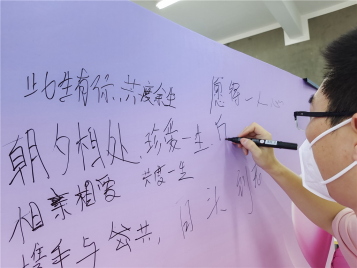 此生有你,共度余生
愿得一人
朝夕相处,珍爱一生
相亲相爱
共度一生
携手与共
白头到老